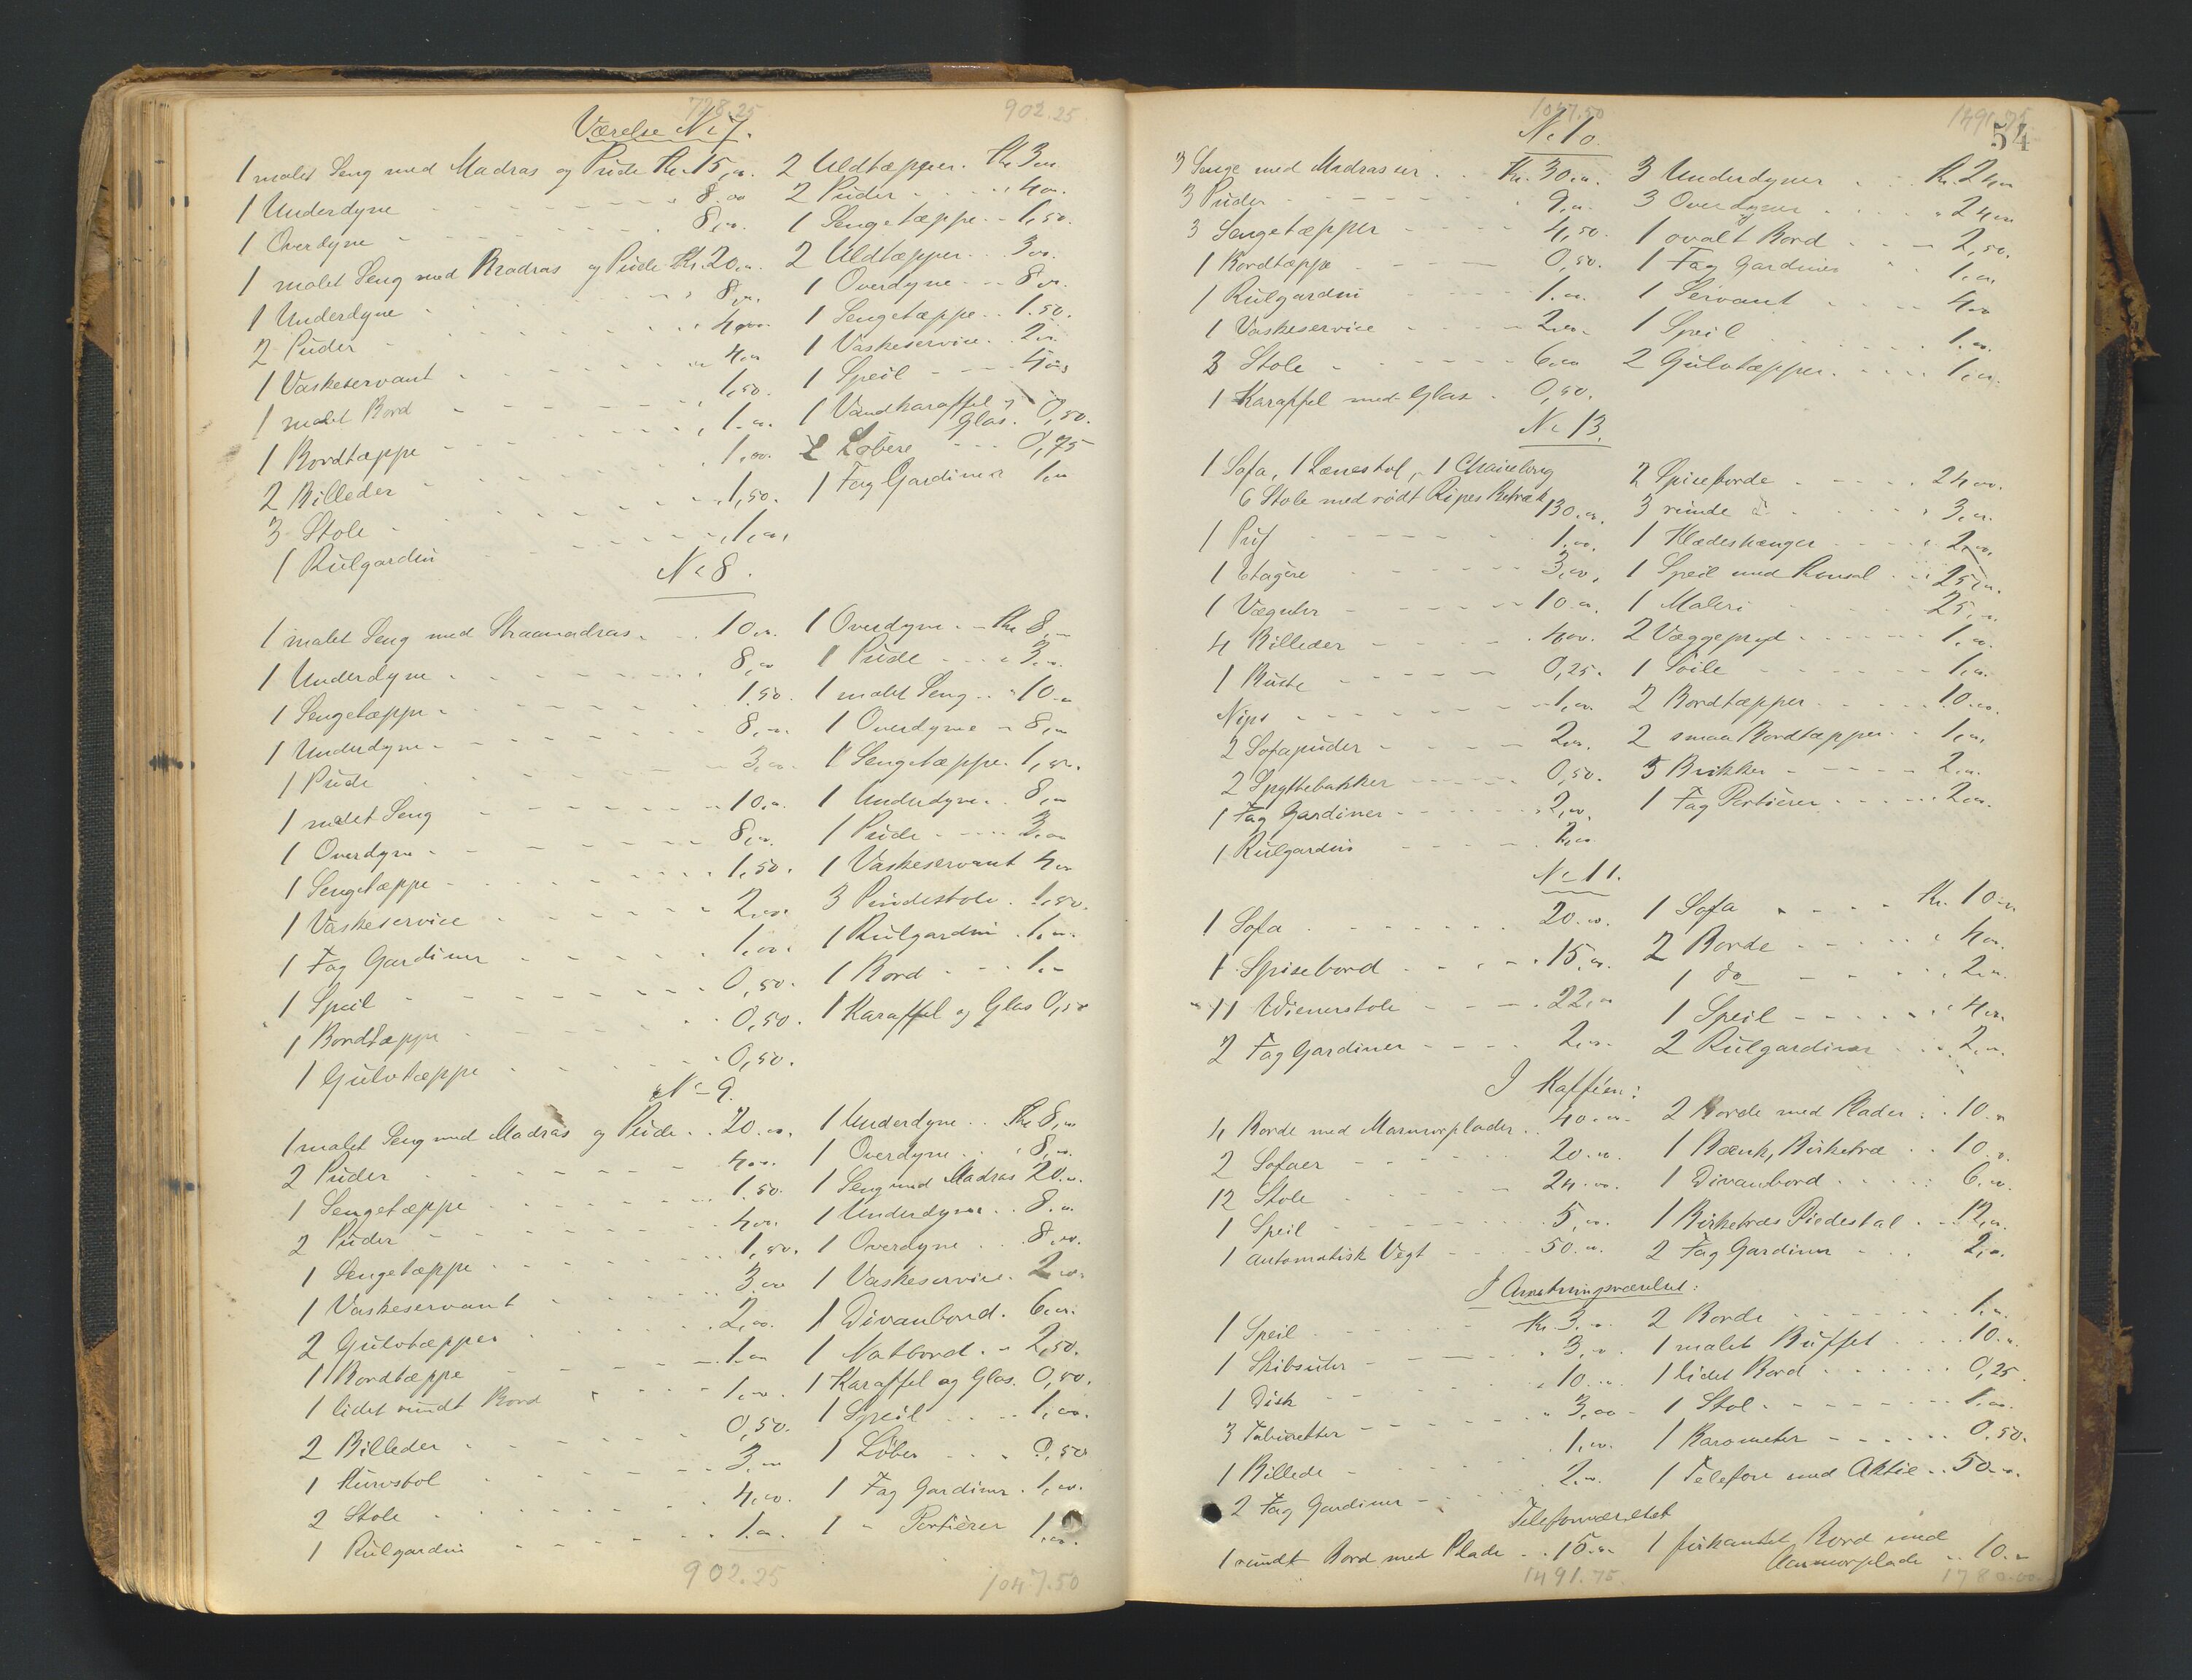 728.25 902.25
Værelse No 7.
1 malet Seng med Madras og Pude Kr. 15,00. 2 Uldtæpper. Kr. 3,00
1 Underdyne 8.00 2 Puder 4,00.
1 Overdyne 8,00. 1 Sengetæppe 1,50.
1 malet Seng med Madras og Pude Kr. 20,00. 2 Uldtæpper 3,00.
1 Underdyne 8,00. 1 Overdyne 8,00.
2 Puder 4,00. 1 Sengetæppe 1.50.
1 Vaskeservant 4,00 1 Vaskeservice 2,00
1 malet Bord 1,50. 1 Speil 4,00
1 Bordtæppe 1.00. 1 Vandkaraffel og Glas. 0,50.
2 Billeder 1,00. 2 Løbere 0,75
3 Stole 1,50. 1 Fag Gardiner 1,00
1 Rulgardin 1,00,
No 8.
1 malet Seng med Straamadras. 10,00. 1 Overdyne Kr 8,00
1 Underdyne 8,00 1 Pude 3,00.
1 Sengetæppe 1.50. 1 malet Seng 10.00
1 Underdyne 8,00 1 Overdyne 8,00
1 Pude 3,00. 1 Sengetæppe. 1,50.
1 malet Seng 10.00. 1 Underdyne 8,00
1 Overdyne 8,00. 1 Pude 3.00
1 Sengetæppe 1,50. 1 Vaskeservant 4,00
1 Vaskeservice 2,00. 3 Pindestole. 1,50.
1 Fag Gardiner 1,00. 1 Rulgardin 1,00.
1 Speil 0,50. 1 Bord 1,00
1 Bordtæppe 0,50. 1 Karaffel og Glas 0,50
1 Gulvtæppe 0,50.
No 9.
1 malet Seng med Madras og Pude 20.00. 1 Underdyne Kr 8,00
2 Puder 4,00. 1 Overdyne 8,00.
1 Sengetæppe 1.50. 1 Seng med Madras 20.00.
2 Puder 4,00. 1 Underdyne 8.00.
1 Sengetæppe 1,50. 1 Overdyne 8,00.
1 Vaskeservant 3,00 1 Vaskeservice. 2,00.
2 Gulvtæpper 2,00. 1 Divanbord. 6,00.
1 Bordtæppe 1.00 1 Natbord. 2,50.
1 lidet rundt Bord 1,00. 1 Karaffel og Glas. 0,50.
2 Billeder 0,50. 1 Speil 1,00.
1 Kurvstol 3,00 1 Løber 0,50
2 Stole 4,00. 1 Fag Gardiner 1,00.
1 Rulgardin 1.00. 1 " Portièrer 1.00.
902.25 1047.50
1047.50 1491.75
54
No 10.
3 Senge med Madrasser Kr. 30.00. 3 Underdyner Kr. 24,00
3 Puder 9,00. 3 Overdyner 24,00
3 Sengetæpper 4,50. 1 ovalt Bord 2,50.
1 Bordtæppe 0,50. 1 Fag Gardiner 1,00.
1 Rulgardin 1.00. 1 Servant 4,00
1 Vaskeservice 2,00. 1 Speil 1.00.
3 Stole 6,00 2 Gulvtæpper. 1,00.
1 Karaffel med Glas 0,50.
No 13.
1 Sofa, 1 Lænestol, 1 Chaiselong
6 Stole med rødt Ripes Betræk 130.00. 2 Spiseborde 24,00.
3 runde do 3,00.
1 Puf 1.00. 1 Klædeshænger 2,00.
1 Etagère 3,00, 1 Speil med Konsol 25,00.
1 Væguhr 10.00. 1 Maleri 25,00
4 Billeder 4,00. 2 Væggepryd 1.00.
1 Buste 0,25. 1 Søile 1,00.
Nips 1,00. 2 Bordtæpper 10.00.
2 Sofapuder 2,00. 2 smaa Bordtæpper 1,00,
2 Spyttebakker 0,50. 5 Brikker 2,00.
1 Fag Gardiner 2,00. 1 Fag Portièrer 2,00.
1 Rulgardin 2,00
No 11.
1 Sofa 20.00. 1 Sofa Kr. 10.00
1 Spisebord 15,00. 2 Borde 4,00.
11 Wienerstole 22,00 1 do 2,00.
2 Fag Gardiner 2,00. 1 Speil 4,00.
2 Rulgardiner 2,00.
I Kafféen:
4 Borde med Marmorplader 40.00 2 Borde med Plader 10.00
2 Sofaer 20.00. 1 Bænk, Birketræ 10.00.
12 Stole 24.00. 1 Divanbord 6.00.
1 Speil 5,00. 1 Birketræs Piedestal 12,00.
1 automatisk Vegt 50.00. 2 Fag Gardiner 2,00.
I Anretningsværelset:
1 Speil Kr. 3.00. 2 Borde 1,00.
1 Skibsuhr 3,00. 1 malet Buffet 10.00.
1 Disk 10.00. 1 lidet Bord 0,25.
3 Taburetter 3,00 1 Stol 1,00.
1 Billede 1,00. 1 Barometer 0.50.
2 Fag Gardiner 2.00. 1 Telefon med Aktie 50.00.
Telefonværelset
1 rundt Bord med Plade 15.00 1 firkantet Bord med
Marmorplade 10.00
1491.75. 1780.00